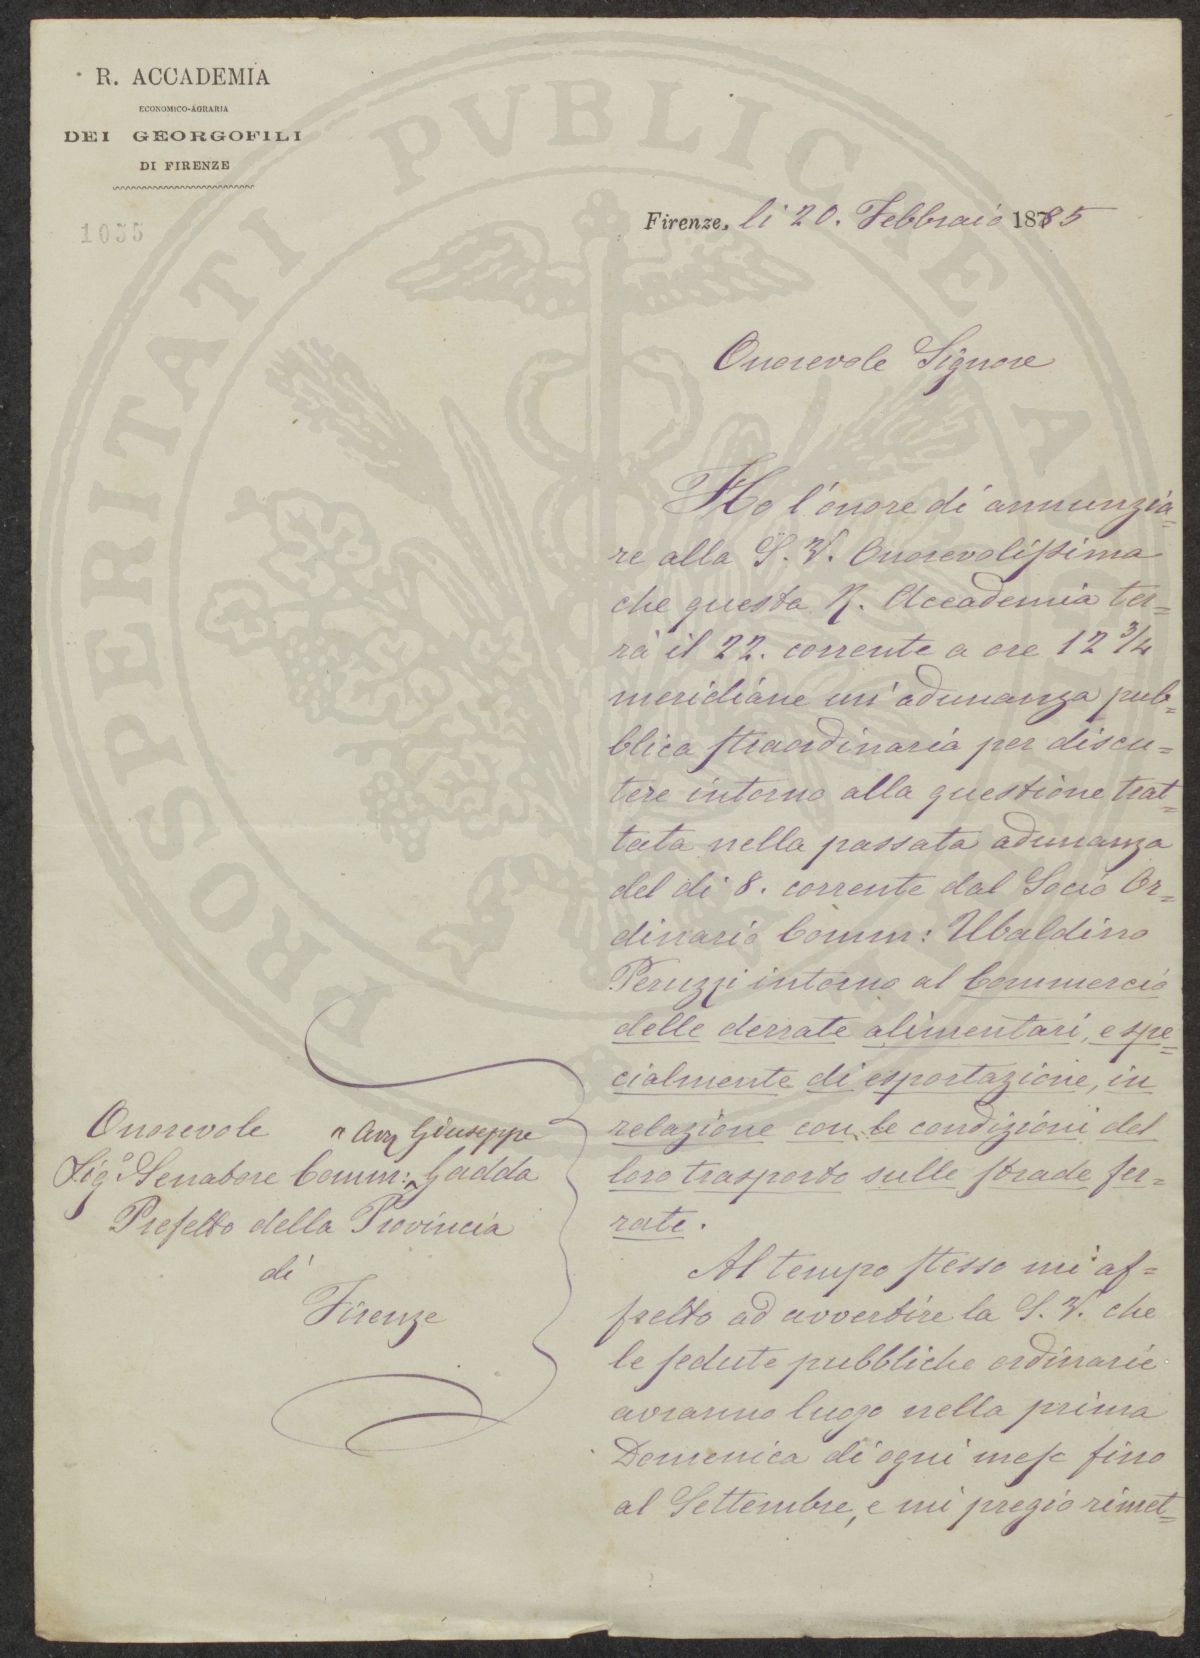 R. ACCADEMIA
ECONOMICO-AGRARIA
DEI GEORGOFILI
DI FIRENZE
1055
Firenze, li 20. Febbraio 1885
Onorevole Signore
Ho l'onore di annunzia-
re alla S. V. Onorevolissima
che questa R. Accademia ter=
rà il 22. corrente a ore 12 3/4
meridiane un'adunanza pub=
blica straordinaria per discu=
tere intorno alla questione trat=
tata nella passata adunanza
del dì 8. corrente dal Socio Or=
dinario Comm: Ubaldino
Peruzzi intorno al Commercio
delle derrate alimentari, e spe=
cialmente di esportazione, in
relazione con le condizioni del
loro trasporto sulle strade fer=
rate.
Al tempo stesso mi af=
fretto ad avvertire la S. V. che
le sedute pubbliche ordinarie
avranno luogo nella prima
Domenica di ogni mese fino
al Settembre, e mi pregio rimet=
Onorevole
Sigo Senatore Comm: Avv Giuseppe Gadda
Prefetto della Provincia
di
Firenze
PROSPERITATI PVBLICAE AVGENDAE